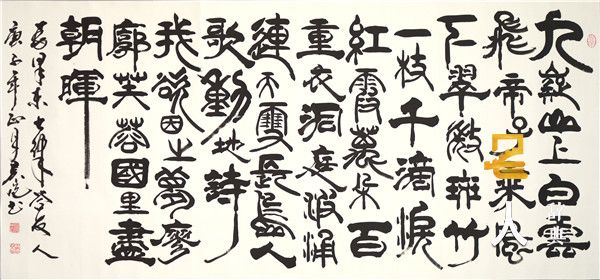 九嶷山上白雲
飛帝子乘風
下翠微斑竹
一枝千滴淚
紅霞萬朵百
重衣洞庭波涌
連天雪長島人
歌動地詩
我欲因之夢廖
廓芙蓉國里盡
朝暉
毛澤東七律答友人
庚子年正月书